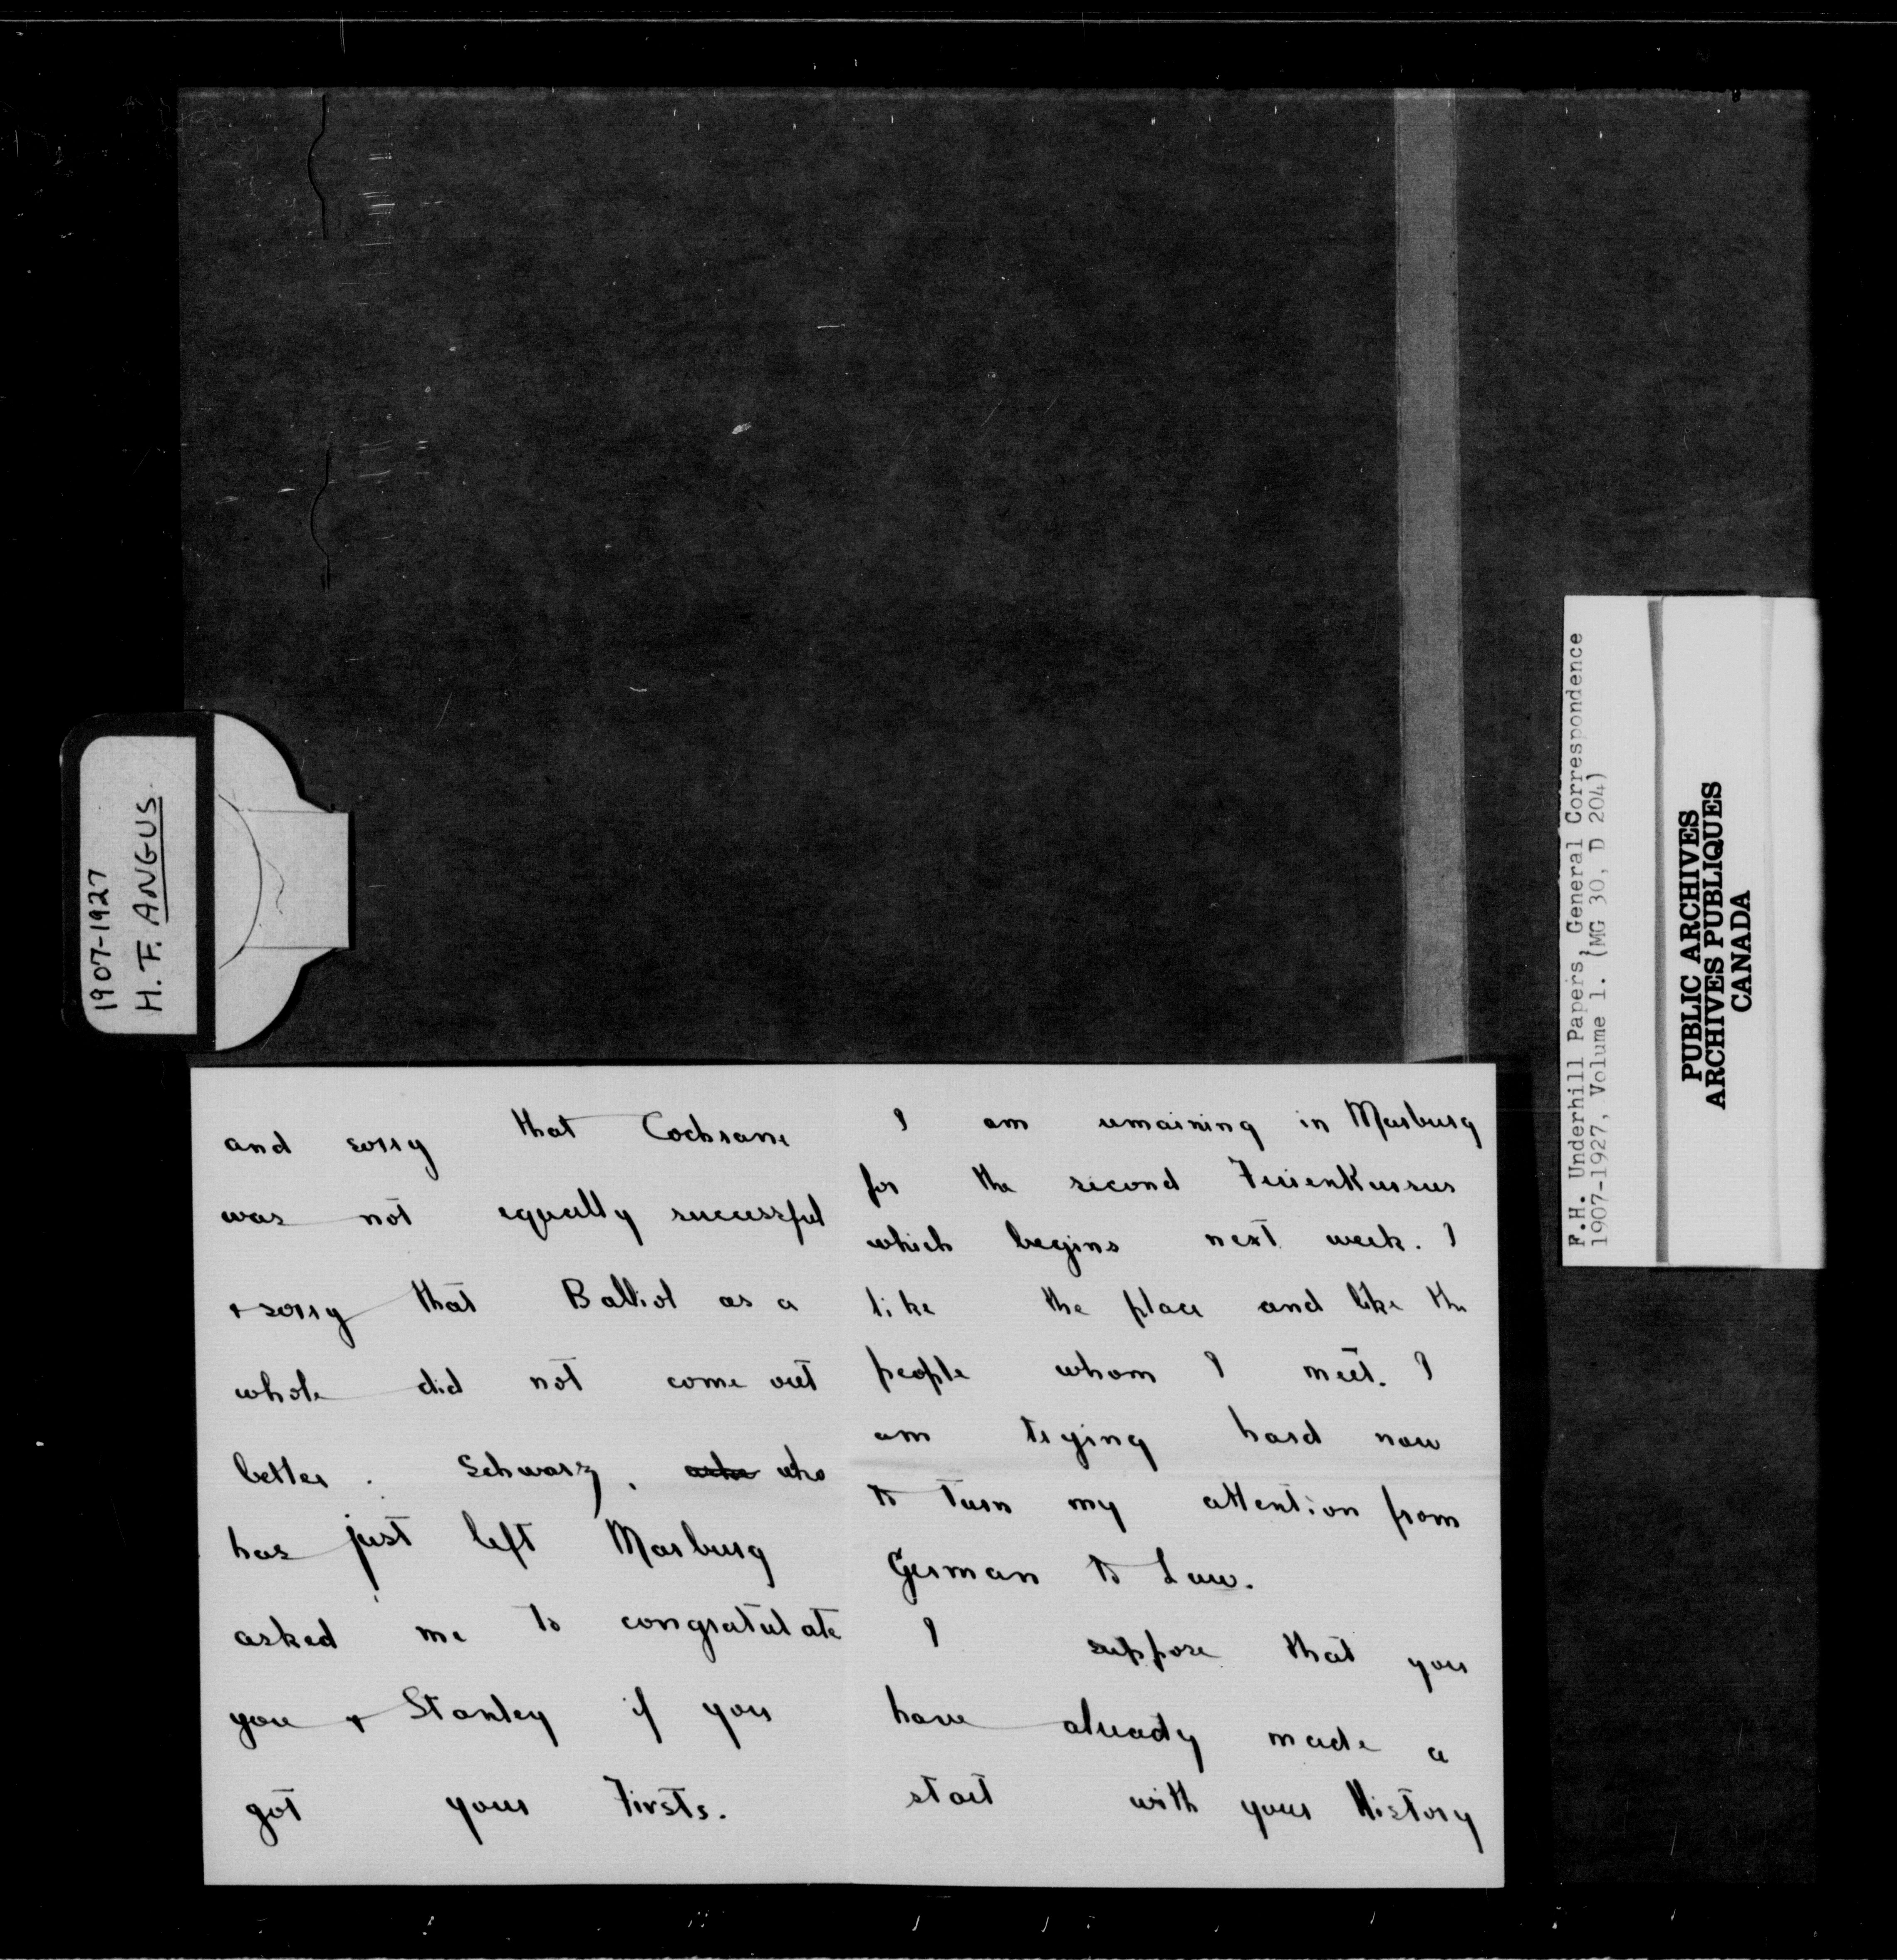 1907-1927
H. F. ANGUS.
and sorry that Cochrane
was not equally successful
+ sorry that Balliol as a
whole did not come out
better. Schwarz, who
has just left Marburg
asked me to congratulate
you + Stanley if you
got your Firsts.
I am remaining in Marburg
for the second Ferienkursus
which begins next week. I
like the place and like the
people whom I meet. I
am trying hard now
to turn my attention from
German to Law.
I suppose that you
have already made a
start with your History
F.H. Underhill Papers, General Correspondence
1907-1927, Volume 1. (MG 30, D 204)
PUBLIC ARCHIVES
ARCHIVES PUBLIQUES
CANADA